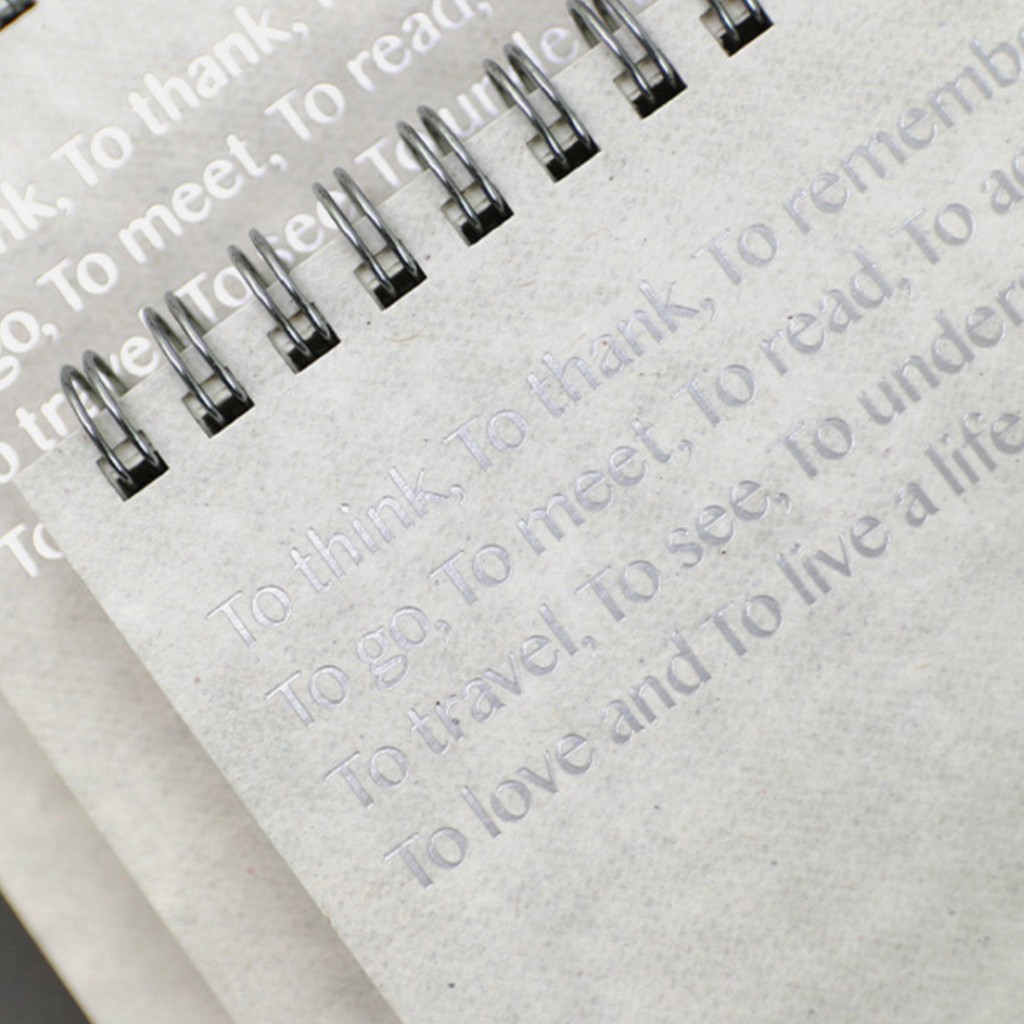 nk, To thank,
go, To meet, To read,
To travel, To see, To unde
To
To think, To thank, To remembe
To go, To meet, To read, To a
To travel, To see, To unders
To love and To live a life